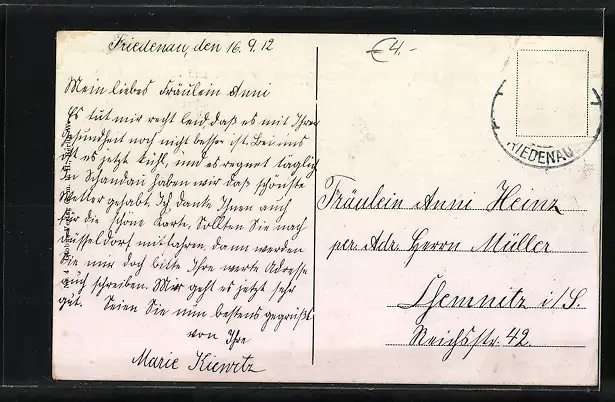 Friedenau, den 16.9.12
€4.-
Mein liebes Fräulein Anni
Es tut mir recht leid, daß es mit Ihrer
Gesundheit noch nicht besser ist. Bei uns
ist es jetzt kühl, und es regnet täglich
In Schandau haben wir daß schönste
Wetter gehabt. Ich danke Ihnen auch
für die schöne Karte. Sollten Sie nach
Düsseldorf mitfahren, dann werden
Sie mir doch bitte Ihre werte Adresse
auch schreiben. Mir geht es jetzt sehr
gut. Seien Sie nun bestens gegrüßt
von Ihre
Marie Kiewitz
RIEDENAU
Fräulein Anni Heinz
per. Adr. Herrn Müller
Chemnitz i/S.
Reichsstr. 42.